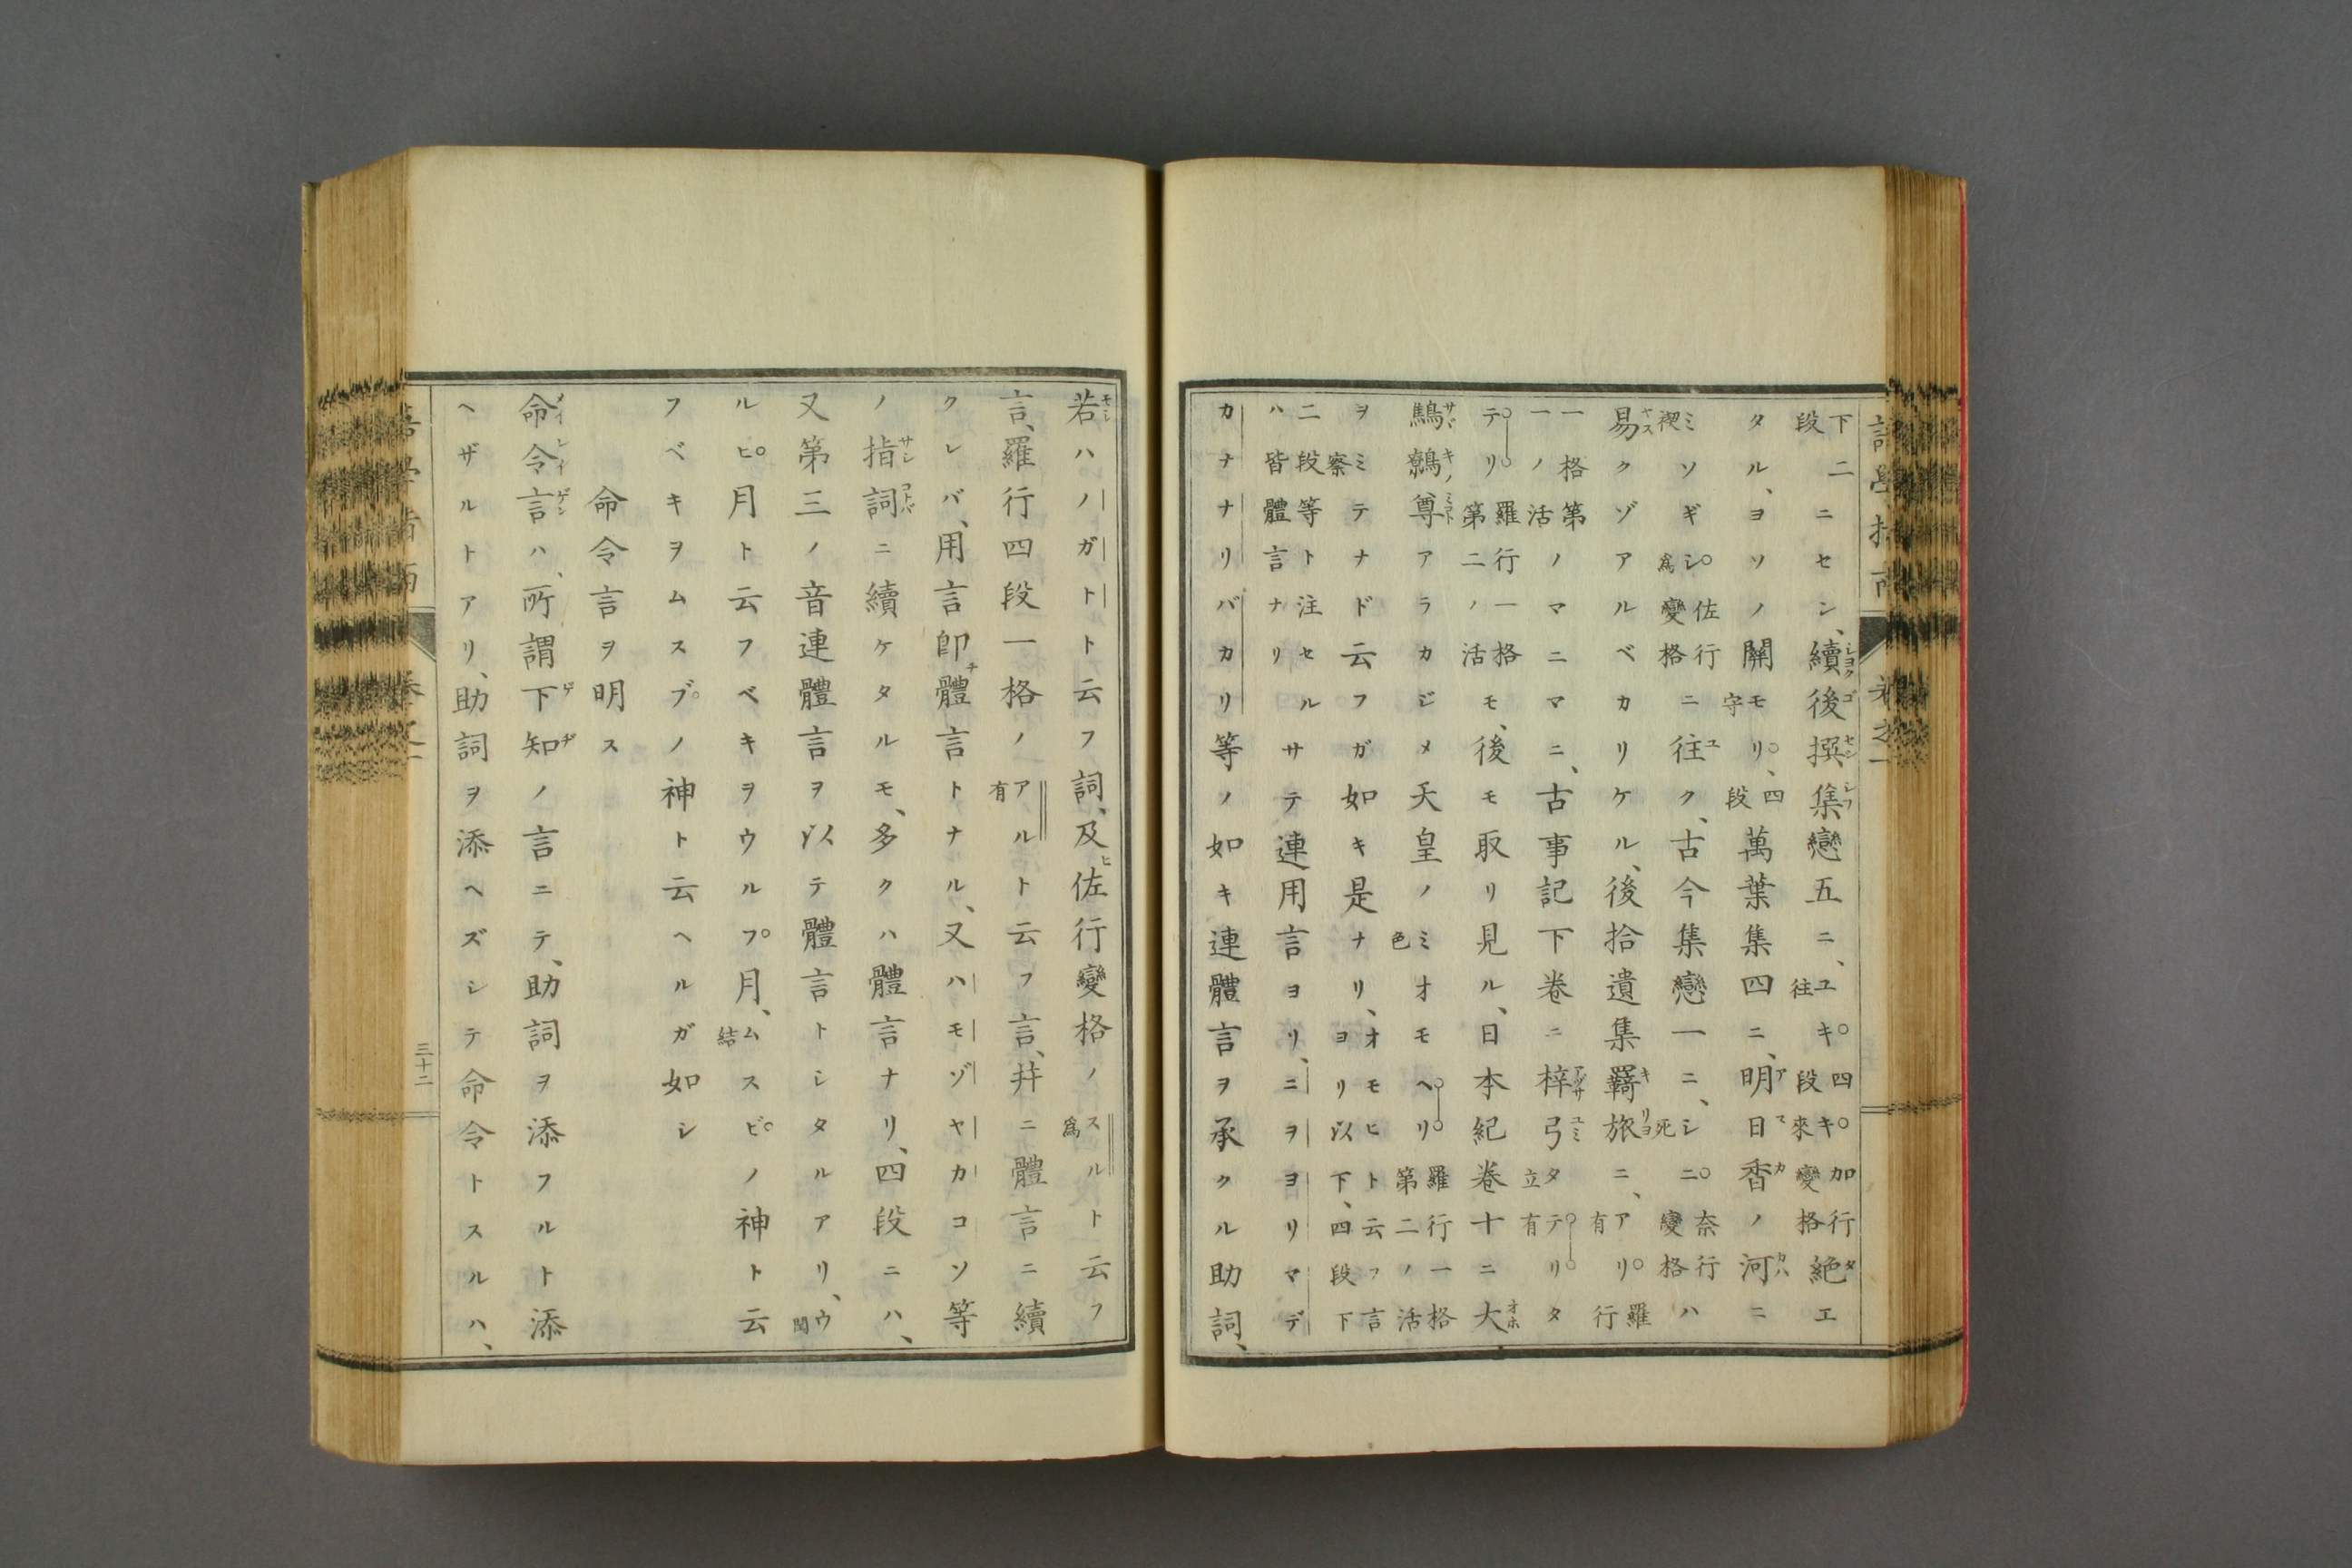 下二段ニセン、續後撰集戀五ニ、ユキ四段キ來加行變格絶エ
タル、ヨソノ關モリ、四段萬葉集四ニ、明日香ノ河ニ
ミソギシ爲佐行變格ニ往ク、古今集戀一ニ、シニ死奈行變格ハ
易クゾアルベカリケル、後拾遺集羇旅ニ、アリ有羅行
一格第一ノ活ノマニマニ、古事記下卷ニ梓弓タ立テリ有リタ
テリ羅行一格第二ノ活モ、後モ取リ見ル、日本紀卷十ニ大
鷦鷯尊アラカジメ天皇ノミオモヘリ羅行一格第二ノ活
ヲミテナド云フガ如キ是ナリ、オモヒト云フ言ヨリ以下、四段下
二段等ト注セルハ皆體言ナリサテ連用言ヨリ、ニヲヨリマデ
カナナリバカリ等ノ如キ連體言ヲ承クル助詞、
若ハノガトト云フ詞、及佐行變格ノスルト云フ
言、羅行四段一格ノアルト云フ言、幷ニ體言ニ續
クレバ、用言卽體言トナル、又ハモゾヤカコソ等
ノ指詞ニ續ケタルモ、多クハ體言ナリ、四段ニハ、
又第三ノ音連體言ヲ以テ體言トシタルアリ、ウ閏
ルヒ月ト云フベキヲウルフ月、ムスビ結ノ神ト云
フベキヲムスブノ神ト云ヘルガ如シ
命令言ヲ明ス
命令言ハ、所謂下知ノ言ニテ、助詞ヲ添フルト添
ヘザルトアリ、助詞ヲ添ヘズシテ命令トスルハ、
三十二